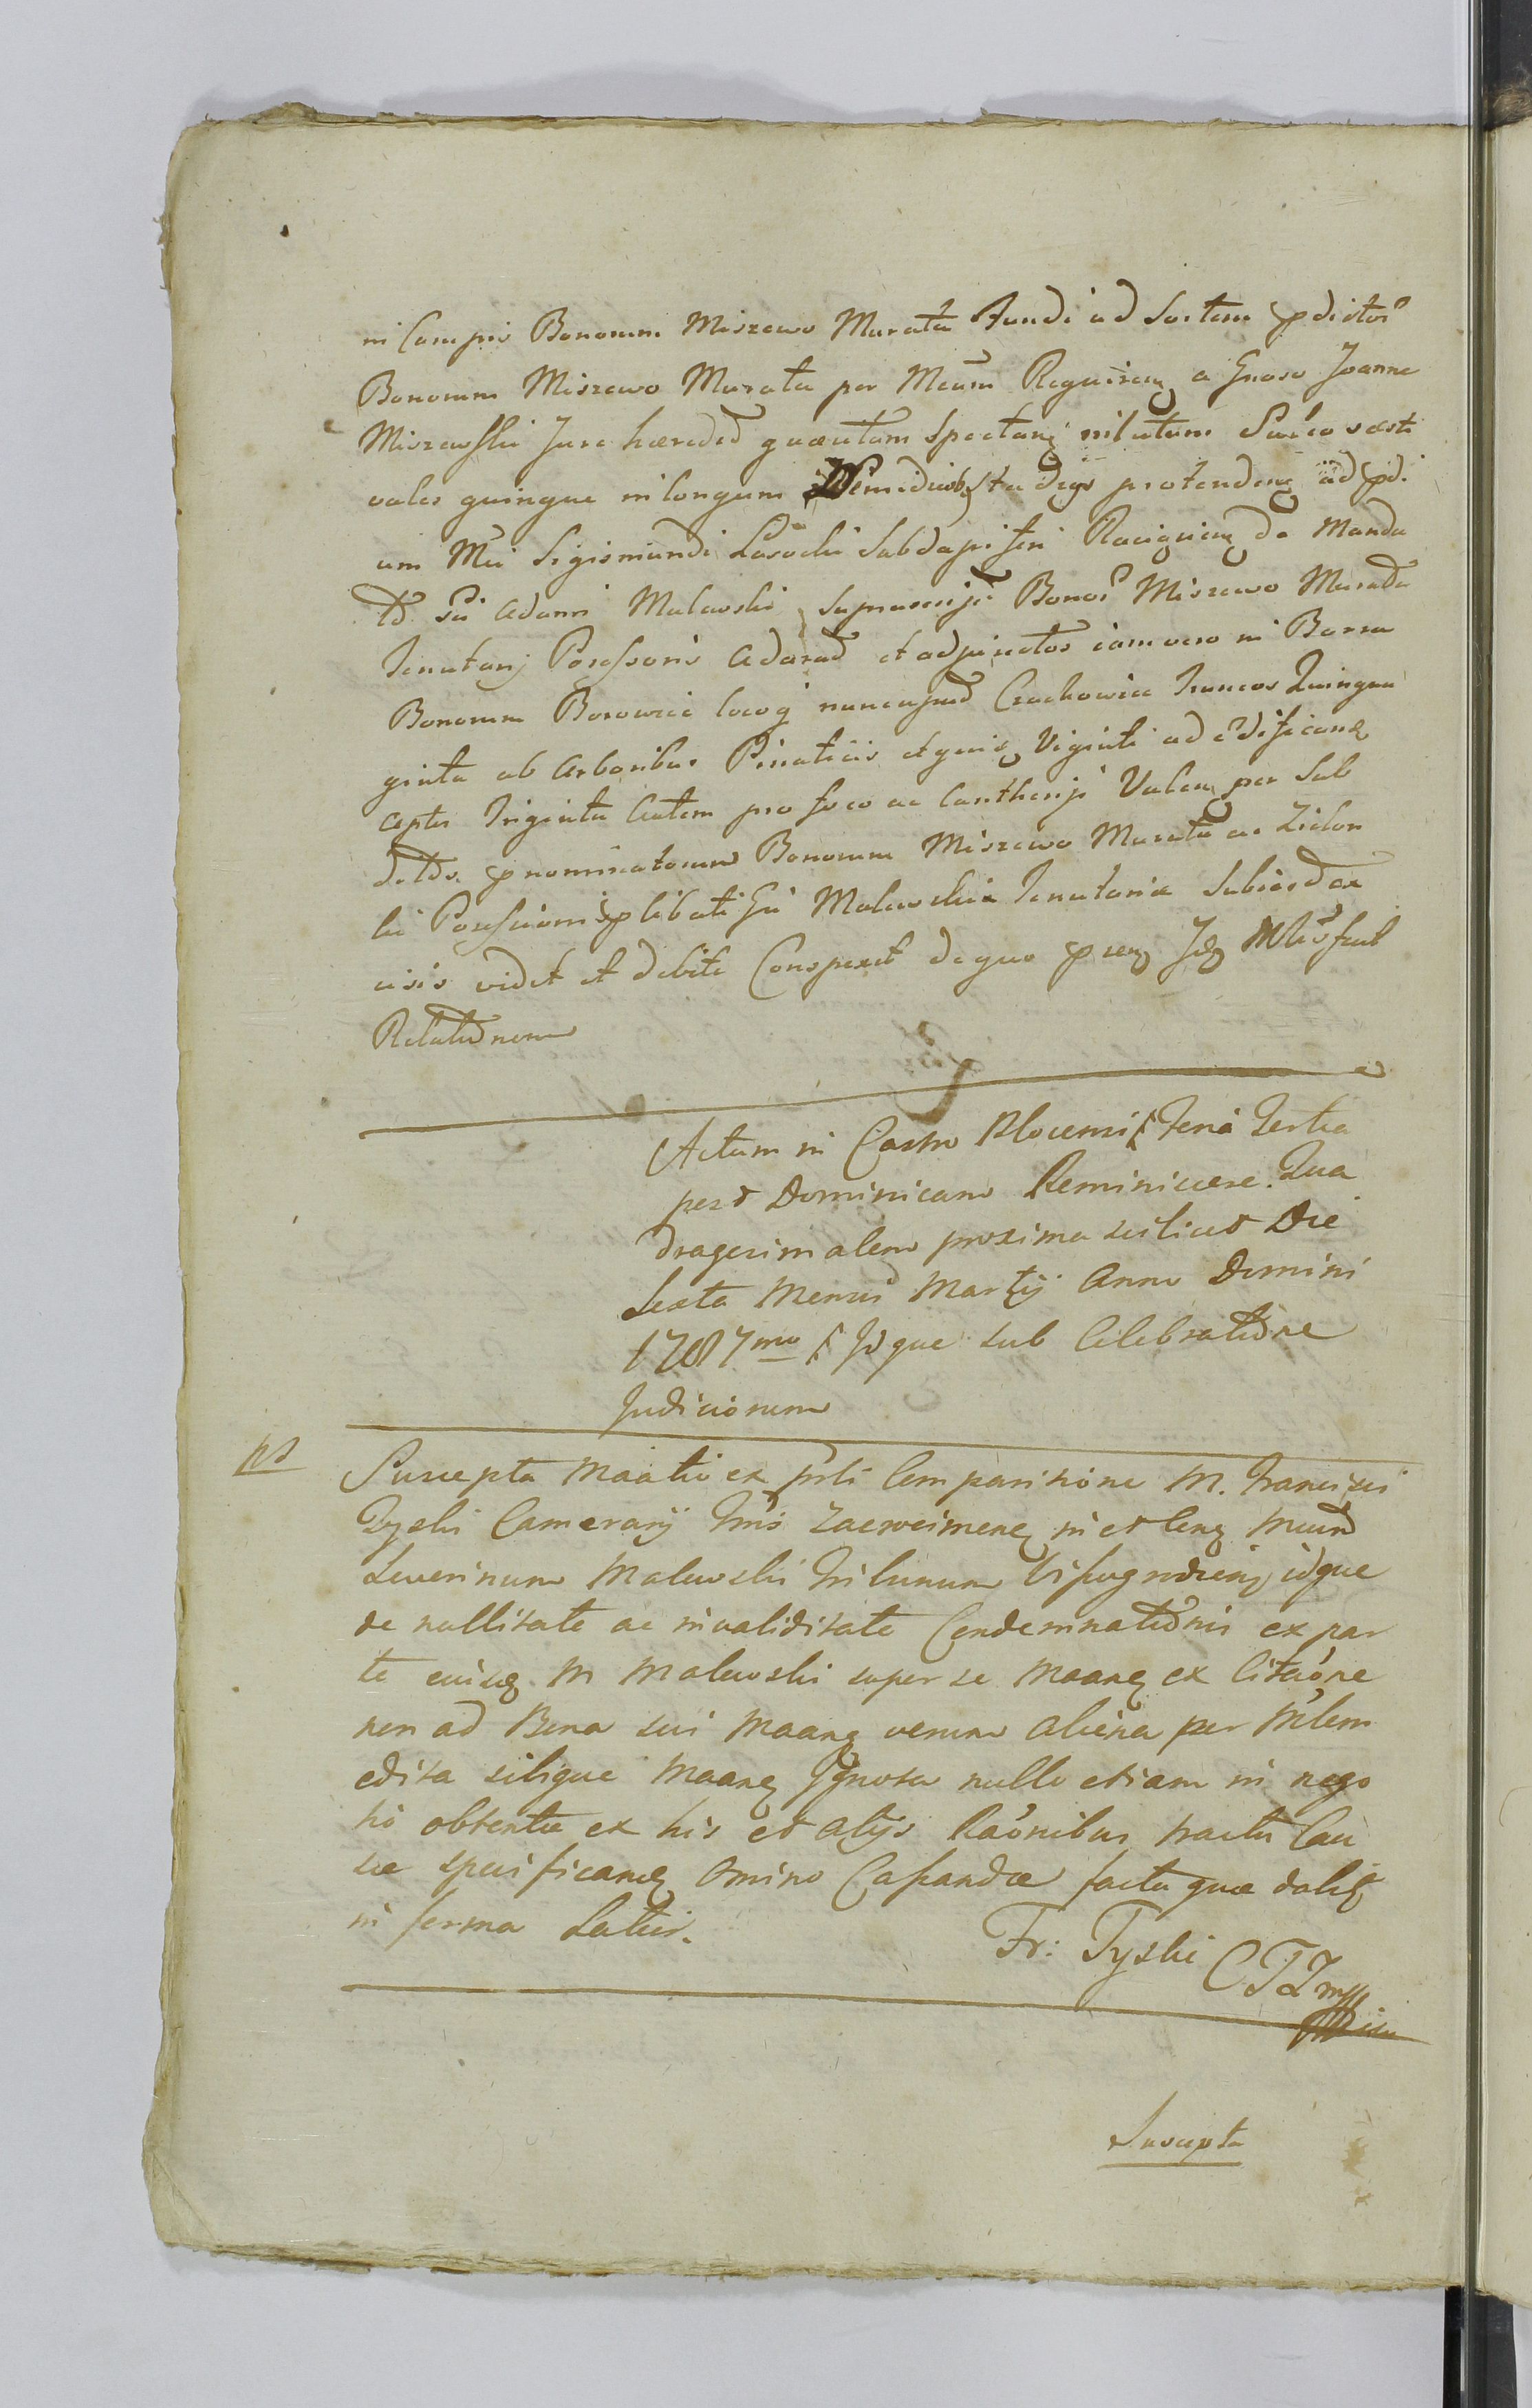 in Campis Bonorum Miszewo Murata Fundi ad Sortem pdictor
Bonorum Miszewo Murata per Meum Requiren a Gnoso Joanne
Miszewski Jure hæredd quæsitam Spectan in latum Sulco vesti
vales quinque in longum stadijs protenden ad pd.
um Mci Sigismundi Lasocki Subdapiferi Raciąznen de Manda
to sui Adami Malewski suprascript Bonor Miszewo Murata
Tenutarij Possessoris Adarad et adjunctos iam vero in Borra
Bonorum Borowice locoq nuncupad Czachowice Truncos Quinqua
ginta ab Arboribus Pinaticiis et quis Viginti ad ædifican
apter Triginta Autem pro foco ac Cantherijs Valen per Sub
dtos pnominatorum Bonorum Miszewo Murata ac Zielon
ki Possessionis plibati Gsi Malewskie Tenutariæ Subiard ex
cisis vidit et debite Conspexit de quo pren Idem Mlis fecit
Relationem
Actum in Castro Plocensi Feria Tertia
post Dominicam Reminiscere Qua
dragesimalem proxima scilicet Die
Sexta Mensis Martij Anno Domini
1787mo Idque sub Celebratione
Judiciorum
Suscepta Maatio ex psti Comparitione M. Francisci
Tyski Camerarij Tris Zacwcimen in et Con Mcum
Severinum Malewski Tribunum Vissogroden idque
de nullitate ac invaliditate Condemnationis ex par
te eiusd M Malewski super se Maan ex Citaone
non ad Bona sui Maan verum aliena per Mlem
edita sibique Maan Ignota nullo etiam in nego
tio obtentæ ex his et alijs Raonibus tractu Cau
sæ specifican Omino Cassandæ facta quæ dalis
in forma Latius.
Fr: Tyski CTZ mpp
Suscepta